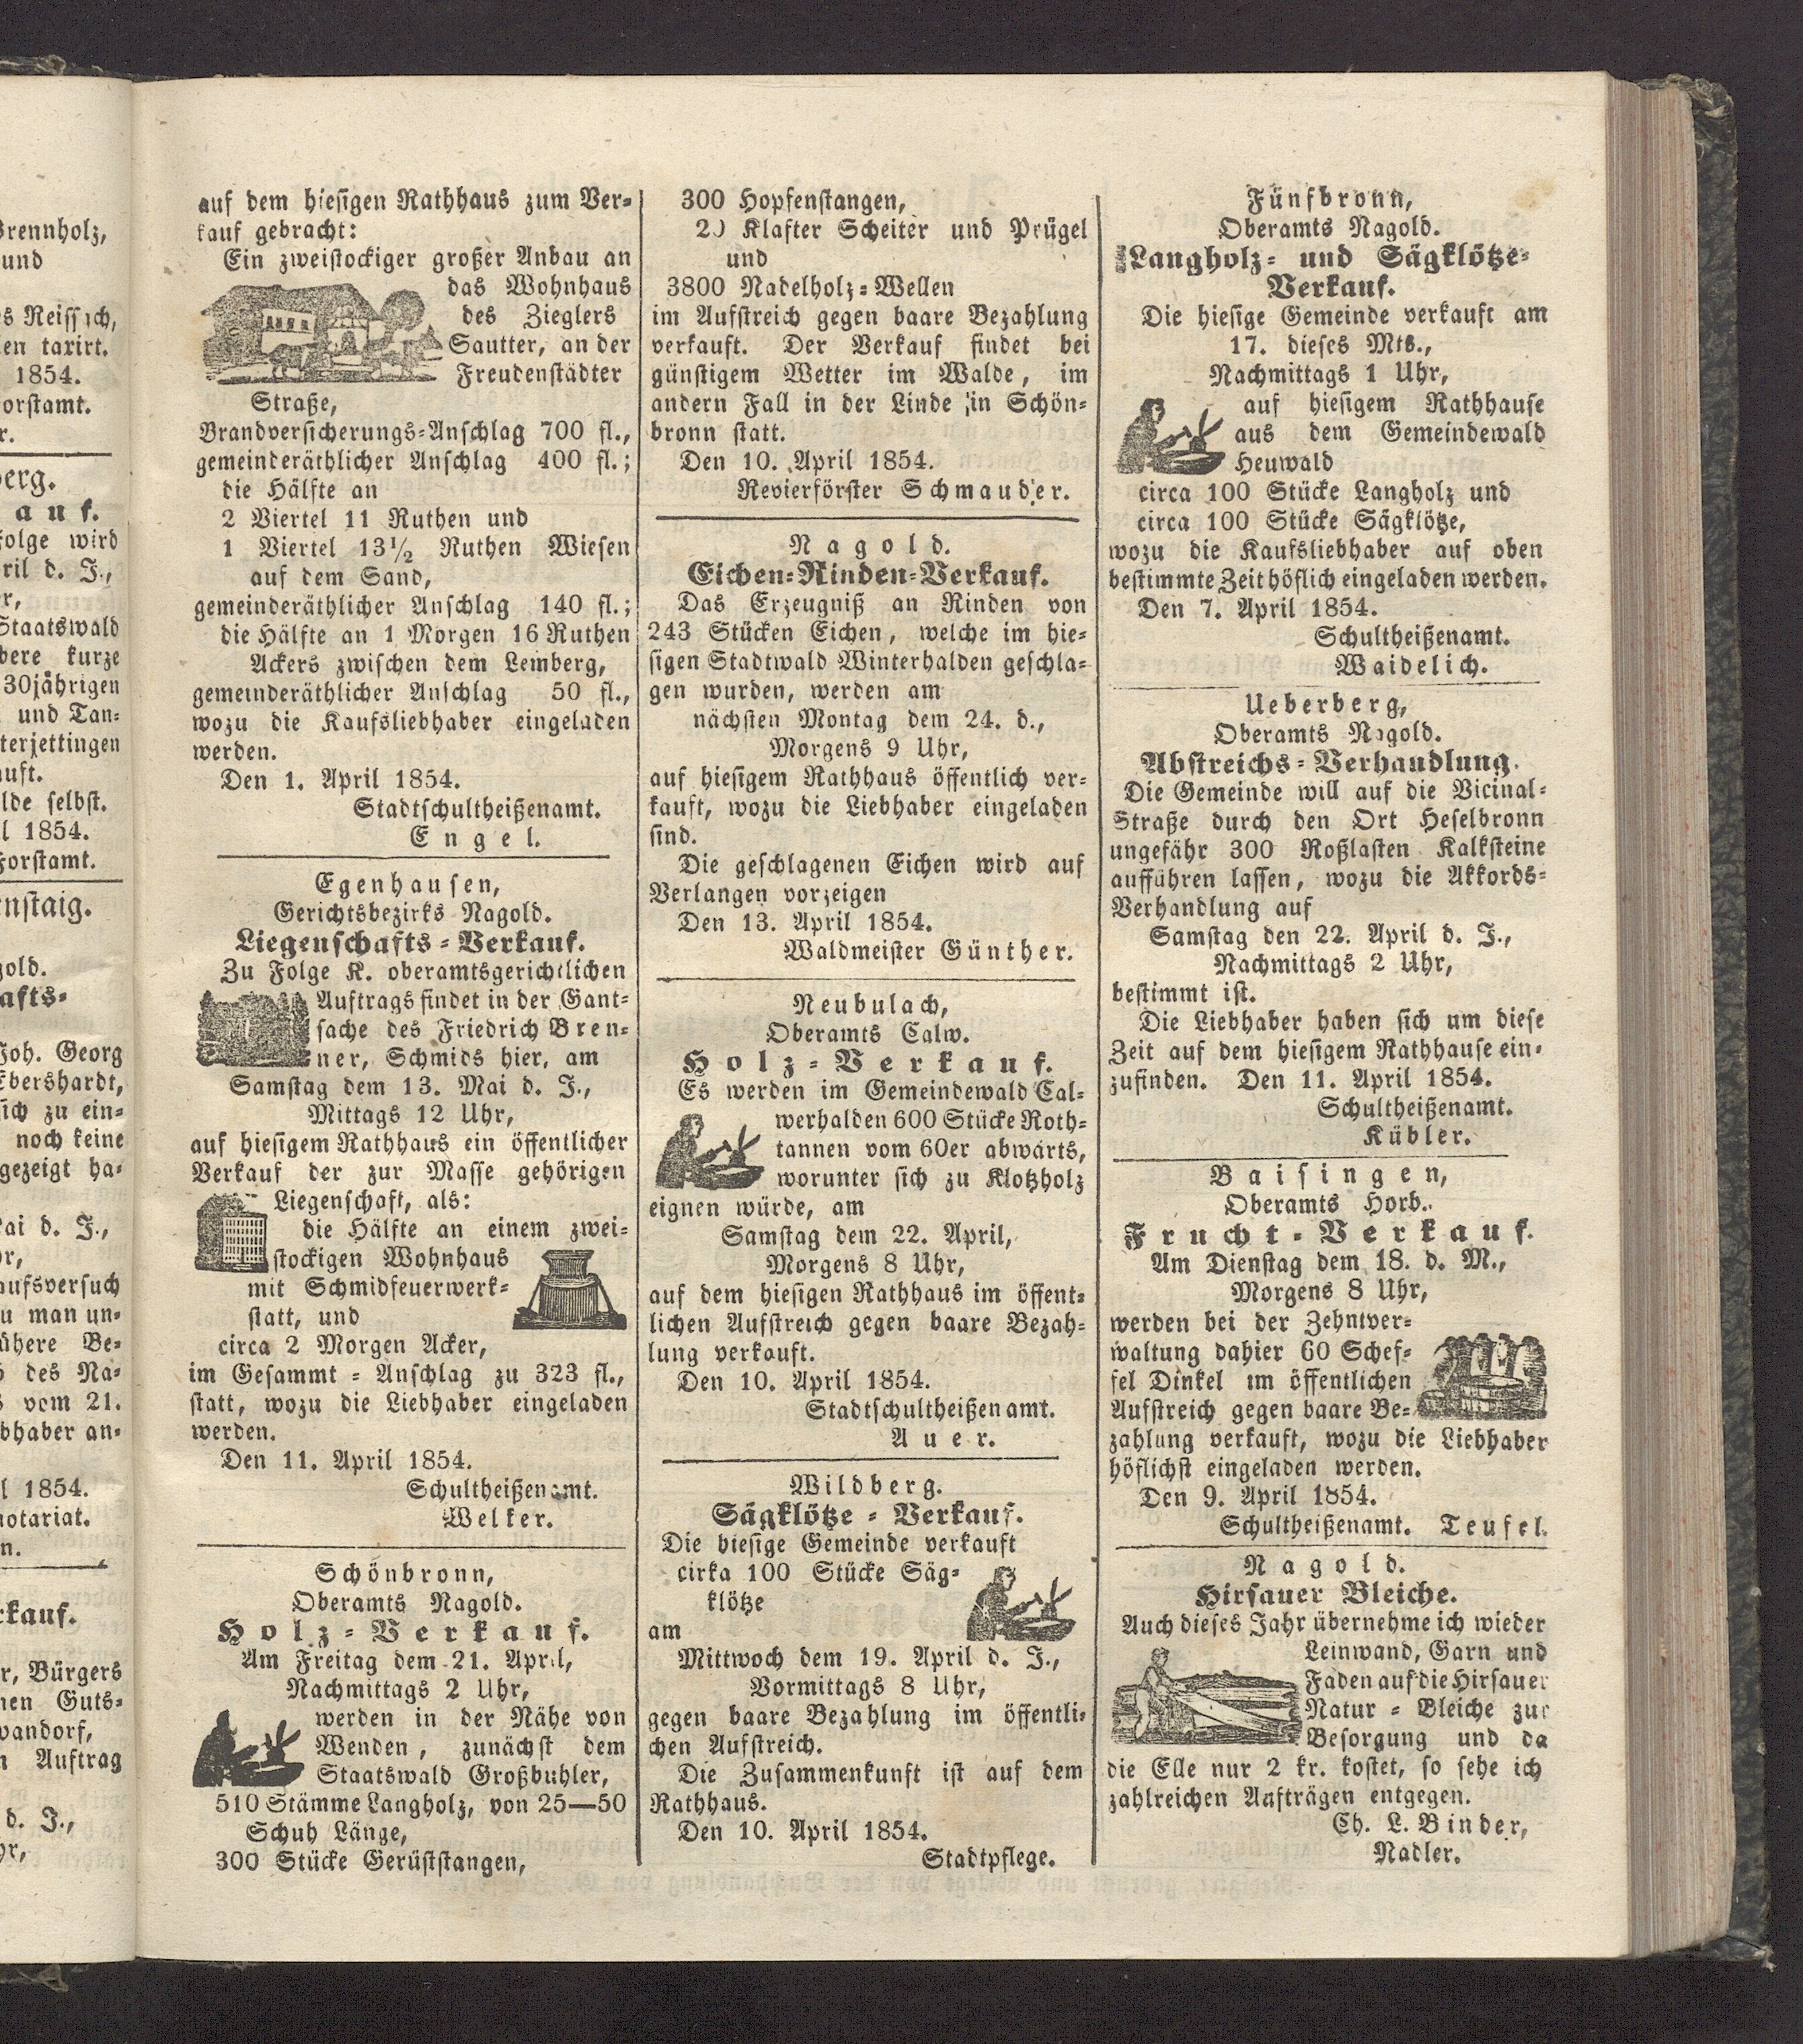 Brennholz,
und
Neissich,
en taxirt.
1854.
orstamt.
r.
erg.
auf.
folge wird
ril d. J.,
r,
Staatswald
bere kurze
30jährigen
und Tan-
terjettingen
auft.
lde selbst.
l 1854.
Forstamt.
nstaig.
gold.
afts-
Joh. Georg
Ebershardt,
sich zu ein-
noch keine
gezeigt ha-
ai d. J.,
r,
aufsversuch
u man un-
ühere Be-
des Na-
vom 21.
bhaber an-
l 1854.
notariat.
n.
rkauf.
r, Bürgers
nen Guts-
wandorf,
n Auftrag
d. J.,
hr,
auf dem hiesigen Rathhaus zum Ver-
kauf gebracht:
Ein zweistockiger großer Anbau an
das Wohnhaus
des Zieglers
Sautter, an der
Freudenstädter
Straße,
Brandversicherungs-Anschlag 700 fl.,
gemeinderäthlicher Anschlag 400 fl.;
die Hälfte an
2 Viertel 11 Ruthen und
1 Viertel 13½ Ruthen Wiesen
auf dem Sand,
gemeinderäthlicher Anschlag 140 fl.;
die Hälfte an 1 Morgen 16 Ruthen
Ackers zwischen dem Lemberg,
gemeinderäthlicher Anschlag 50 fl.,
wozu die Kaufsliebhaber eingeladen
werden.
Den 1. April 1854.
Stadtschultheißenamt.
Engel.
Egenhausen,
Gerichtsbezirks Nagold.
Liegenschafts-Verkauf.
Zu Folge K. oberamtsgerichtlichen
Auftrags findet in der Gant-
sache des Friedrich Bren-
ner, Schmids hier, am
Samstag dem 13. Mai d. J.,
Mittags 12 Uhr,
auf hiesigem Rathhaus ein öffentlicher
Verkauf der zur Masse gehörigen
Liegenschaft, als:
die Hälfte an einem zwei-
stockigen Wohnhaus
mit Schmidfeuerwerk-
statt, und
circa 2 Morgen Acker,
im Gesammt-Anschlag zu 323 fl.,
statt, wozu die Liebhaber eingeladen
werden.
Den 11. April 1854.
Schultheißenamt.
Welker.
Schönbronn,
Oberamts Nagold.
Holz-Verkauf.
Am Freitag dem 21. April,
Nachmittags 2 Uhr,
werden in der Nähe von
Wenden, zunächst dem
Staatswald Großbuhler,
510 Stämme Langholz, von 25—50
Schuh Länge,
300 Stücke Gerüststangen,
300 Hopfenstangen,
20 Klafter Scheiter und Prügel
und
3800 Nadelholz-Wellen
im Aufstreich gegen baare Bezahlung
verkauft. Der Verkauf findet bei
günstigem Wetter im Walde, im
andern Fall in der Linde in Schön-
bronn statt.
Den 10. April 1854.
Revierförster Schmauder.
Nagold.
Eichen-Rinden-Verkauf.
Das Erzeugniß an Rinden von
243 Stücken Eichen, welche im hie-
sigen Stadtwald Winterhalden geschla-
gen wurden, werden am
nächsten Montag dem 24. d.,
Morgens 9 Uhr,
auf hiesigem Rathhaus öffentlich ver-
kauft, wozu die Liebhaber eingeladen
sind.
Die geschlagenen Eichen wird auf
Verlangen vorzeigen
Den 13. April 1854.
Waldmeister Günther.
Neubulach,
Oberamts Calw.
Holz-Verkauf.
Es werden im Gemeindewald Cal-
werhalden 600 Stücke Roth-
tannen vom 60er abwärts,
worunter sich zu Klotzholz
eignen würde, am
Samstag dem 22. April,
Morgens 8 Uhr,
auf dem hiesigen Rathhaus im öffent-
lichen Aufstreich gegen baare Bezah-
lung verkauft.
Den 10. April 1854.
Stadtschultheißenamt.
Auer.
Wildberg.
Sägklötze-Verkauf.
Die hiesige Gemeinde verkauft
cirka 100 Stücke Säg-
klötze
am
Mittwoch dem 19. April d. J.,
Vormittags 8 Uhr,
gegen baare Bezahlung im öffentli-
chen Aufstreich.
Die Zusammenkunft ist auf dem
Rathhaus.
Den 10. April 1854.
Stadtpflege.
Fünfbronn,
Oberamts Nagold.
Langholz- und Sägklötze-
Verkauf.
Die hiesige Gemeinde verkauft am
17. dieses Mts.,
Nachmittags 1 Uhr,
auf hiesigem Rathhause
aus dem Gemeindewald
Heuwald
circa 100 Stücke Langholz und
circa 100 Stücke Sägklötze,
wozu die Kaufsliebhaber auf oben
bestimmte Zeit höflich eingeladen werden.
Den 7. April 1854.
Schultheißenamt.
Waidelich.
Ueberberg,
Oberamts Nagold.
Abstreichs-Verhandlung.
Die Gemeinde will auf die Vicinal-
Straße durch den Ort Heselbronn
ungefähr 300 Roßlasten Kalksteine
aufführen lassen, wozu die Akkords-
Verhandlung auf
Samstag den 22. April d. J.,
Nachmittags 2 Uhr,
bestimmt ist.
Die Liebhaber haben sich um diese
Zeit auf dem hiesigem Rathhause ein-
zufinden. Den 11. April 1854.
Schultheißenamt.
Kübler.
Baisingen,
Oberamts Horb.
Frucht-Verkauf.
Am Dienstag dem 18. d. M.,
Morgens 8 Uhr,
werden bei der Zehntver-
waltung dahier 60 Schef-
fel Dinkel im öffentlichen
Aufstreich gegen baare Be-
zahlung verkauft, wozu die Liebhaber
höflichst eingeladen werden.
Den 9. April 1854.
Schultheißenamt. Teufel.
Nagold.
Hirsauer Bleiche.
Auch dieses Jahr übernehme ich wieder
Leinwand, Garn und
Faden auf die Hirsauer
Natur-Bleiche zur
Besorgung und da
die Elle nur 2 kr. kostet, so sehe ich
zahlreichen Aufträgen entgegen.
Ch. L. Binder,
Nadler.